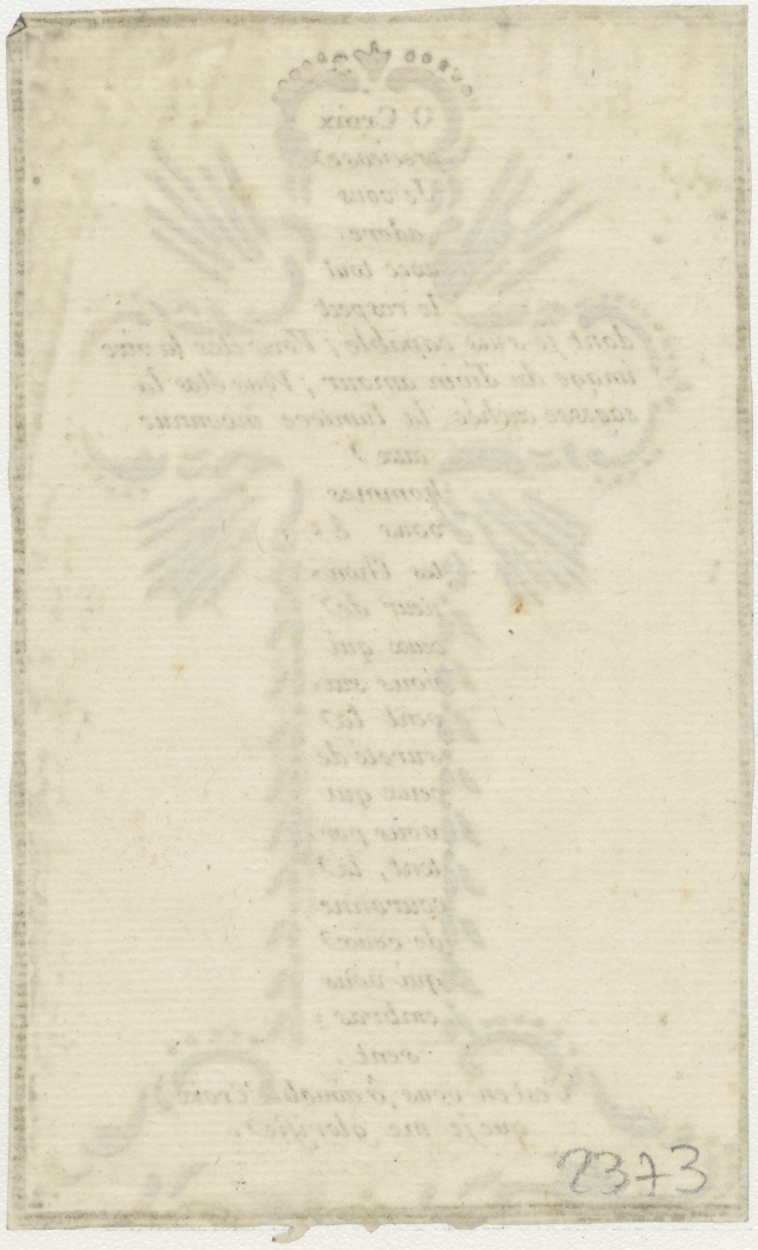 O Croix
precieuse
Je vous
adore,
avec tout
le respect
dont je suis capable ; Vous etes la vive
image du divin amour ; Vous etes la
sagesse cachée, la lumiere inconnue
aux
hommes
vous ê-
tes l'hon-
neur de
ceux qui
vous sui-
vent la
sureté de
ceux qui
vous por-
tent, la
couronne
de ceux
qui vous
embras-
sent.
C'est en vous, ô aimable Croix
que je me glorifie.
2373